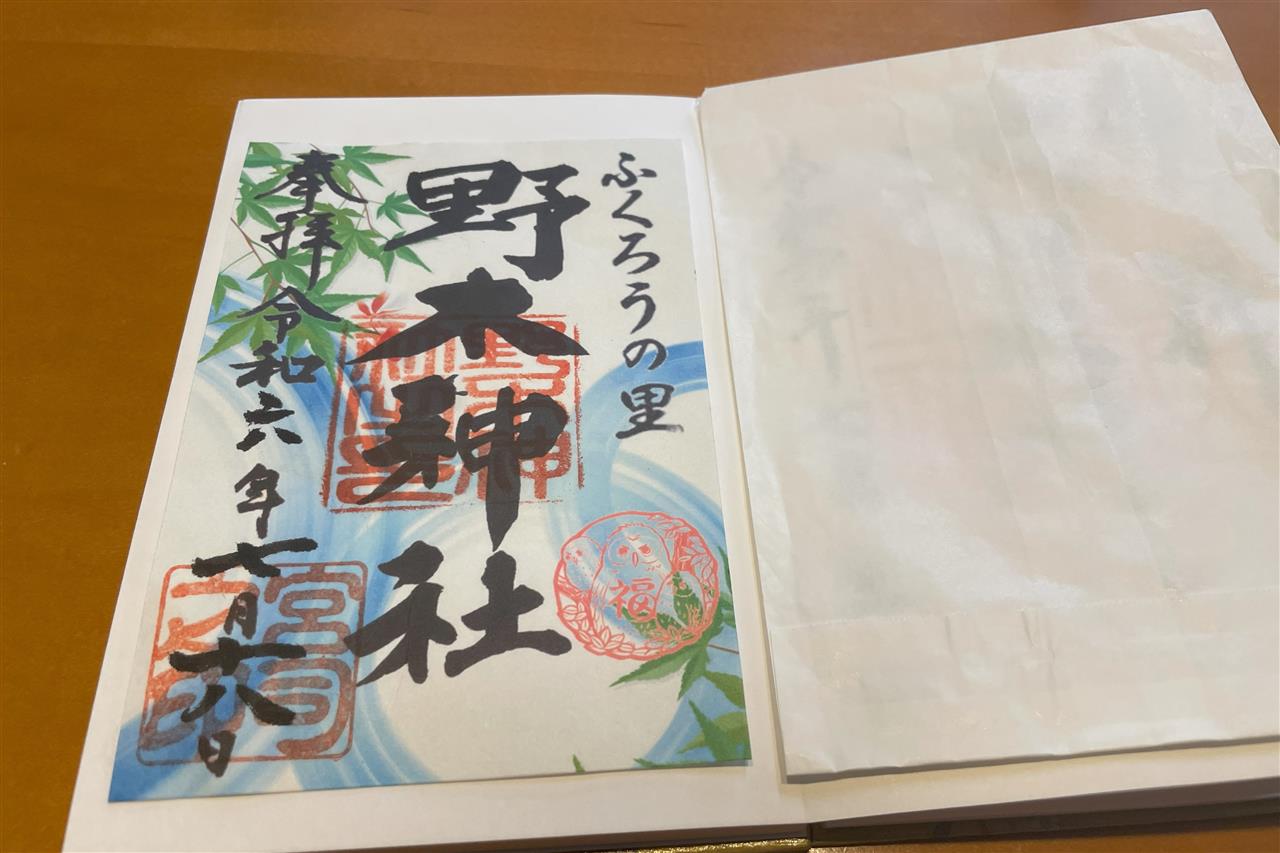 ふくろうの里
野木神社
奉拝令和六年七月十八日
福
宮司之印